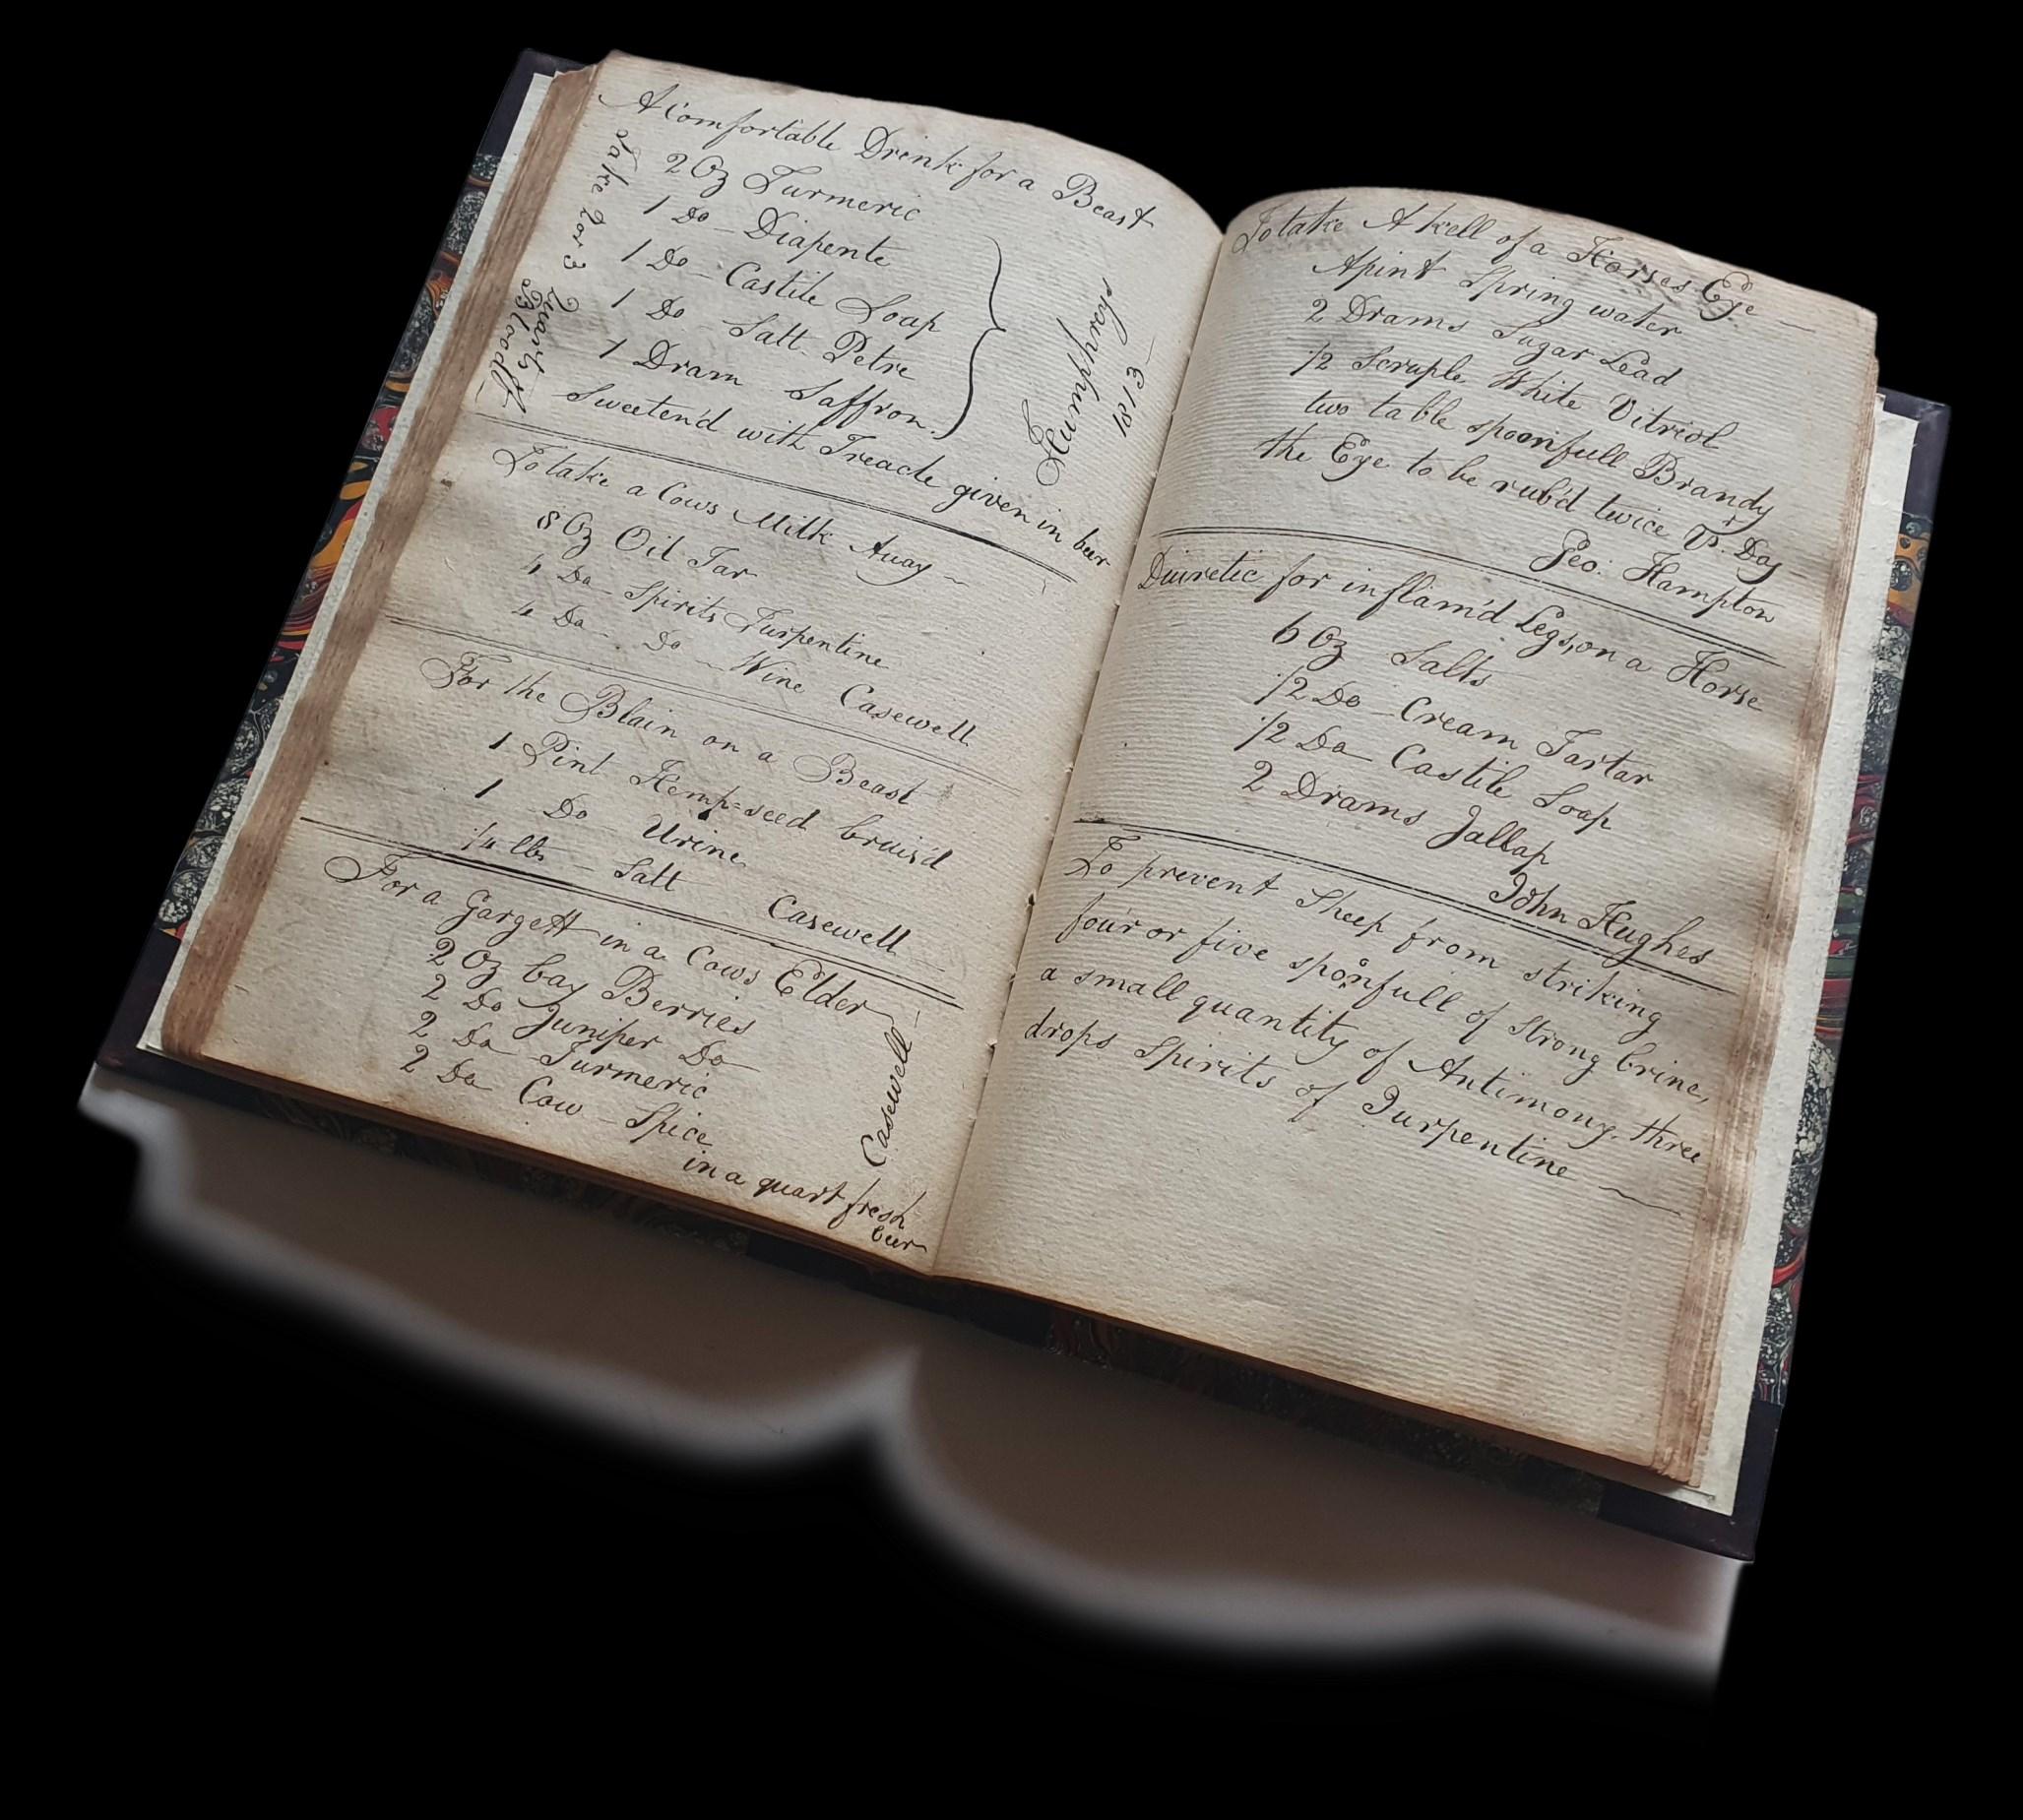 A Comfortable Drink for a Beast
2 Oz Turmeric
1 Do - Diapente
1 Do - Castile Soap
1 Do Salt-Petre
1 Dram Saffron.
Sweeten'd with Treacle given in beer
Take 2 or 3
Quarts of
Blood
Humphreys
1813
To take a Cows Milk Away
8 Oz Oil Tar
4 Do - Spirits Turpentine
4 Do - Do - Wine Casewell
For the Blain on a Beast
1 Pint Hemp=seed bruis'd
1 Do Urine
1/4 lbs - Salt Casewell
For a Gargett in a Cows Elder
2 Oz bay Berries
2 Do Juniper Do
2 Do Turmeric
2 Do Cow - Spice
in a quart fresh
beer
Casewell
To take A kell of a Horses Eye
A pint Spring water
2 Drams Sugar Lead
1/2 Scruple White Vitriol
two table spoonfull Brandy
the Eye to be rub'd twice Pr. Day
Geo: Hampton
Diuretic for inflam'd Legs, on a Horse
6 Oz Salts
1/2 Do - Cream Tartar
1/2 Do - Castile Soap
2 Drams Jallap
John Hughes
To prevent Sheep from striking
four or five sponfull of strong brine,
a small quantity of Antimony. three
drops Spirits of Turpentine